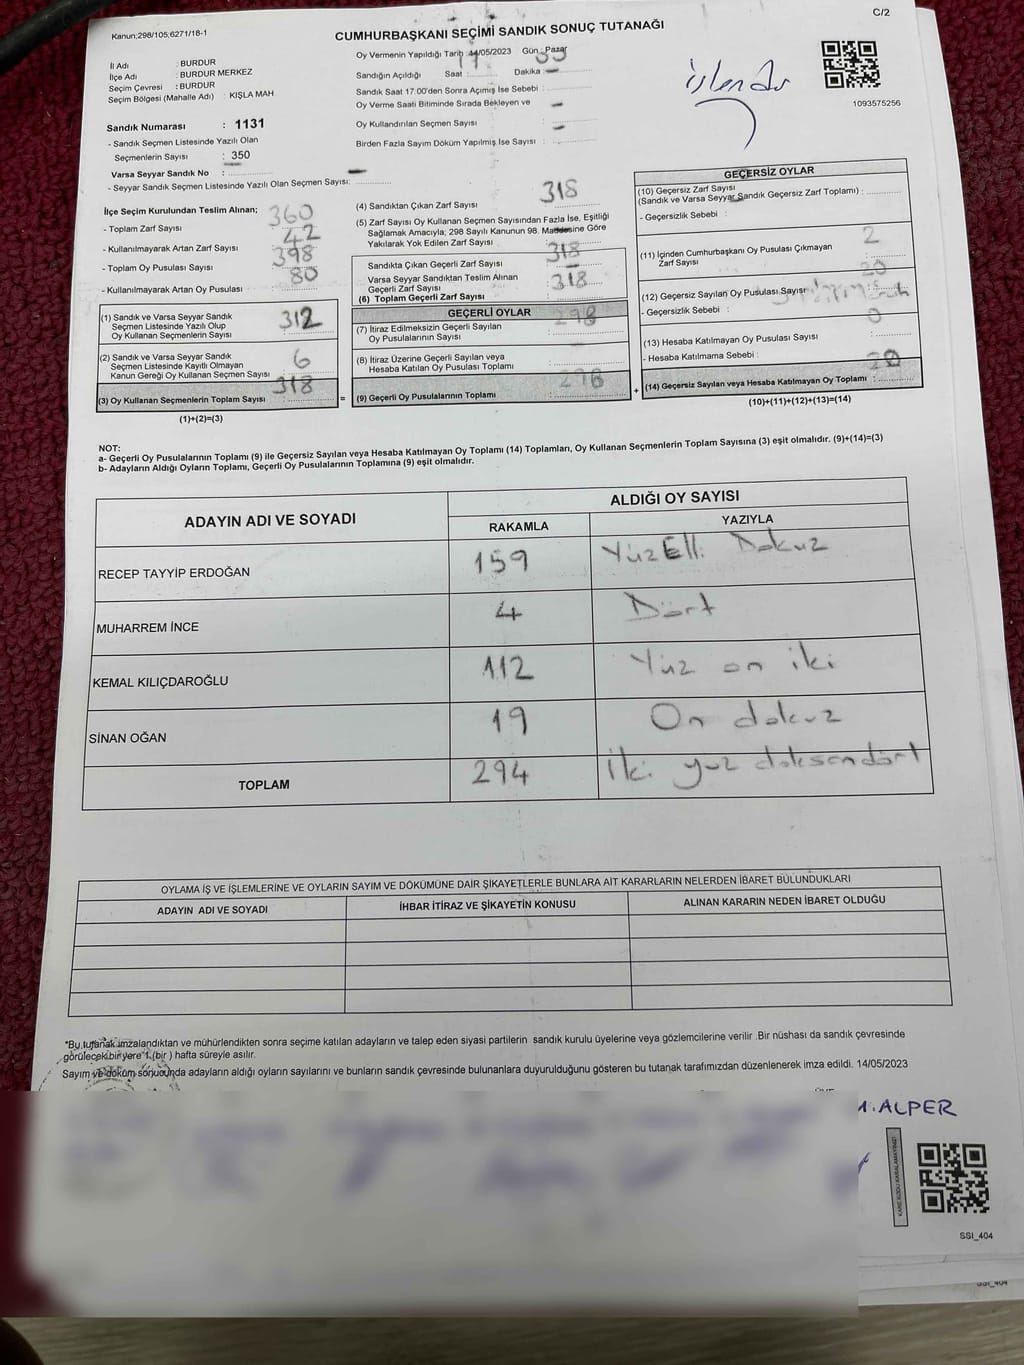 C/2
Kanun;298/105;6271/18-1
CUMHURBAŞKANI SEÇİMİ SANDIK SONUÇ TUTANAĞI
İl Adı : BURDUR
İlçe Adı : BURDUR MERKEZ
Seçim Çevresi : BURDUR
Seçim Bölgesi (Mahalle Adı) : KIŞLA MAH
Sandık Numarası : 1131
- Sandık Seçmen Listesinde Yazılı Olan
Seçmenlerin Sayısı : 350
Varsa Seyyar Sandık No :
- Seyyar Sandık Seçmen Listesinde Yazılı Olan Seçmen Sayısı:
Oy Vermenin Yapıldığı Tarih 14/05/2023 Gün : Pazar
Sandığın Açıldığı Saat : 17 Dakika
Sandık Saat 17:00'den Sonra Açılmış İse Sebebi :
Oy Verme Saati Bitiminde Sırada Bekleyen ve
Oy Kullandırılan Seçmen Sayısı :
Birden Fazla Sayım Döküm Yapılmış İse Sayısı :
işlendi
1093575256
İlçe Seçim Kurulundan Teslim Alınan;
- Toplam Zarf Sayısı 360
- Kullanılmayarak Artan Zarf Sayısı 42
- Toplam Oy Pusulası Sayısı 398
- Kullanılmayarak Artan Oy Pusulası : 80
(1) Sandık ve Varsa Seyyar Sandık
Seçmen Listesinde Yazılı Olup
Oy Kullanan Seçmenlerin Sayısı 312
(2) Sandık ve Varsa Seyyar Sandık
Seçmen Listesinde Kayıtlı Olmayan
Kanun Gereği Oy Kullanan Seçmen Sayısı 6
(3) Oy Kullanan Seçmenlerin Toplam Sayısı 318
(1)+(2)=(3)
=
(4) Sandıktan Çıkan Zarf Sayısı : 318
(5) Zarf Sayısı Oy Kullanan Seçmen Sayısından Fazla İse, Eşitliği
Sağlamak Amacıyla; 298 Sayılı Kanunun 98. Maddesine Göre
Yakılarak Yok Edilen Zarf Sayısı
Sandıkta Çıkan Geçerli Zarf Sayısı 318
Varsa Seyyar Sandıktan Teslim Alınan
Geçerli Zarf Sayısı
(6) Toplam Geçerli Zarf Sayısı 318
GEÇERLİ OYLAR
(7) İtiraz Edilmeksizin Geçerli Sayılan
Oy Pusulalarının Sayısı 298
(8) İtiraz Üzerine Geçerli Sayılan veya
Hesaba Katılan Oy Pusulası Toplamı
(9) Geçerli Oy Pusulalarının Toplamı
+
GEÇERSİZ OYLAR
(10) Geçersiz Zarf Sayısı
(Sandık ve Varsa Seyyar Sandık Geçersiz Zarf Toplamı) :
- Geçersizlik Sebebi :
(11) İçinden Cumhurbaşkanı Oy Pusulası Çıkmayan
Zarf Sayısı 2
(12) Geçersiz Sayılan Oy Pusulası Sayısı 20
- Geçersizlik Sebebi :
(13) Hesaba Katılmayan Oy Pusulası Sayısı 0
- Hesaba Katılmama Sebebi :
(14) Geçersiz Sayılan veya Hesaba Katılmayan Oy Toplamı : 20
(10)+(11)+(12)+(13)=(14)
NOT:
a- Geçerli Oy Pusulalarının Toplamı (9) ile Geçersiz Sayılan veya Hesaba Katılmayan Oy Toplamı (14) Toplamları, Oy Kullanan Seçmenlerin Toplam Sayısına (3) eşit olmalıdır. (9)+(14)=(3)
b- Adayların Aldığı Oyların Toplamı, Geçerli Oy Pusulalarının Toplamına (9) eşit olmalıdır.
ADAYIN ADI VE SOYADI ALDIĞI OY SAYISI
RAKAMLA YAZIYLA
RECEP TAYYİP ERDOĞAN 159 YüzElli Dokuz
MUHARREM İNCE 4 Dört
KEMAL KILIÇDAROĞLU 112 Yüz on iki
SİNAN OĞAN 19 On dokuz
TOPLAM 294 İki yüz doksandört
OYLAMA İŞ VE İŞLEMLERİNE VE OYLARIN SAYIM VE DÖKÜMÜNE DAİR ŞİKAYETLERLE BUNLARA AİT KARARLARIN NELERDEN İBARET BULUNDUKLARI
ADAYIN ADI VE SOYADI İHBAR İTİRAZ VE ŞİKAYETİN KONUSU ALINAN KARARIN NEDEN İBARET OLDUĞU
*Bu tutanak imzalandıktan ve mühürlendikten sonra seçime katılan adayların ve talep eden siyasi partilerin sandık kurulu üyelerine veya gözlemcilerine verilir .Bir nüshası da sandık çevresinde
görülecek bir yere 1 (bir) hafta süreyle asılır.
Sayım ve döküm sonucunda adayların aldığı oyların sayılarını ve bunların sandık çevresinde bulunanlara duyurulduğunu gösteren bu tutanak tarafımızdan düzenlenerek imza edildi. 14/05/2023
ALPER
KARE KODU KARALAMAYINIZ!
SSI_404
SSI_404